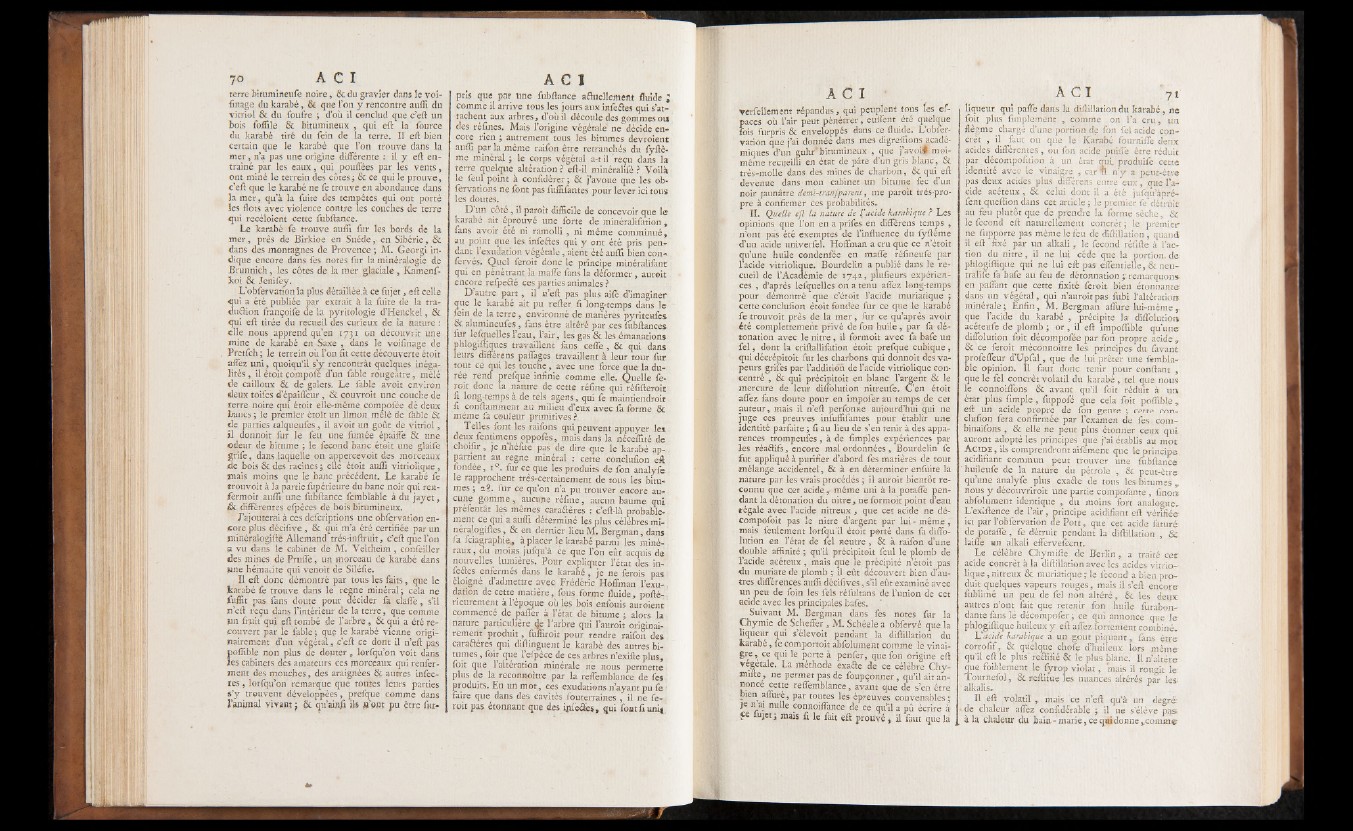 70 A C I
A C I
terre bitumineuſe noire, & du gravier dans le voi-
ſinage du karabé, & que l'on y rencontre auſſi du
vitriol & du ſoufre ; d'où il conclud que c'eſt un
bois foſſile & bitumineux , qui eſt la ſource
du karabé tiré du ſein de la terre. Il eſt bien
certain que le karabé que l'on trouve dans la
mer, n'a pas une origine différente : il y eſt en-
traîné par les eaux, qui, pouſſées par les vents,
ont miné le terrein des côtes ; & ce qui le prouve,
c'eſt que le karabé ne ſe trouve en abondance dans
la mer, qu'à la ſuite des tempêtes qui ont porté
les flots avec violence contre les couches de terre
qui receloient cette ſubſtance.
Le karabé ſe trouve auſſi ſur les bords de la
mer, près de Birkioe en Suède, en Sibérie, &
dans des montagnes de Provence ; M. Georgi in-
dique encore dans ſes notes ſur la minéralogie de
Brunnich, les côtes de la mer glaciale, Kamenſ-
koi & Jeniſey.
L'obſervation la plus détaillée à ce ſujet, eſt celle
qui a été publiée par extrait à la ſuite de la tra-
duction françoiſe de la pyritologie d'Henckel, &
qui eſt tirée du recueil des curieux de la nature :
elle nous apprend qu'en 1731 on découvrit une
mine de karabé en Saxe , dans le voiſinage de
Pretſch ; le terrein où l'on fit cette découverte étoit
aſſez uni, quoiqu'il s'y rencontrât quelques inéga-
lités, il étoit compoſé d'un ſable rougeâtre, mêlé
de cailloux & de galets. Le ſable avoit environ
deux toiſes d'épaiſſeur, & couvroit une couche de
terre noire qui étoit elle-même compoſée de deux
bancs ; le premier étoit un limon mêlé de ſable &
de parties talqueuſes, il avoit un goût de vitriol,
il donnoit ſur le feu une fumée épaiſſe & une
odeur de bitume ; le ſecond banc étoit une glaiſe
griſe, dans laquelle on appercevoit des morceaux
de bois & des racines ; elle étoit auſſi vitriolique,
mais moins que le banc précédent. Le karabé ſe
trouvoit à la partie ſupérieure du banc noir qui ren-
fermoit auſſi une ſubſtance ſemblable à du jayet,
& différentes eſpèces de bois bitumineux.
J'ajouterai à ces deſcriptions une obſervation en-
core plus déciſive, & qui m'a été certifiée par un
minéralogiſte Allemand très-inſtruit, c'eſt que l'on
a vu dans le cabinet de M. Veltheim, conſeiller
des mines de Pruſſe, un morceau de karabé dans
une hématite qui venoit de Siléſie.
Il eſt donc démontré par tous les faits, que le
karabé ſe trouve dans le regne minéral ; cela ne
ſuffit pas ſans doute pour décider ſa claſſe, s'il
n'eſt reçu dans l'intérieur de la terre, que comme
un fruit qui eſt tombé de l'arbre, & qui a été re-
couvert par le ſable ; que le karabé vienne origi-
nairement d'un végétal, c'eſt ce dont il n'eſt pas
poſſible non plus de douter, lorſqu'on voit dans
les cabinets des amateurs ces morceaux qui renfer-
ment des mouches, des araignées & autres inſec-
tes, lorſqu'on remarque que toutes leurs parties
s'y trouvent développées, preſque comme dans
l'animal vivant ; & qu'ainſi ils n'ont pu être ſur-
pris que par une ſubſtance actuellement fluide ;
comme il arrive tous les jours aux inſectes qui s'at-
tachent aux arbres, d'où il découle des gommes ou
des réſines. Mais l'origine végétale ne décide en-
core rien ; autrement tous les bitumes devroient
auſſi par la même raiſon être retranchés du ſyſtê-
me minéral ; le corps végétal a-t-il reçu dans la
terre quelque altération ? eſt-il minéraliſé ? Voilà
le ſeul point à conſidérer ; & j'avoue que les ob-
ſervations ne ſont pas ſuffiſantes pour lever ici tous
les doutes.
D'un côté, il paroît difficile de concevoir que le
karabé ait éprouvé une ſorte de minéraliſation,
ſans avoir été ni ramolli, ni même comminué,
au point que les inſectes qui y ont été pris pen-
dant l'exudation végétale, aient été auſſi bien con-
ſervés. Quel ſeroit donc le principe minéraliſant
qui en pénétrant la maſſe ſans la déformer, auroit
encore reſpecté ces parties animales ?
D'autre part, il n'eſt pas plus aiſé d'imaginer
que le karabé ait pu reſter ſi long-temps dans le
ſein de la terre, environné de matières pyriteuſes
& alumineuſes, ſans être altéré par ces ſubſtances
ſur leſquelles l'eau, l'air, les gas & les émanations
phlogiſtiques travaillent ſans ceſſe, & qui dans
leurs différens paſſages travaillent à leur tour ſur
tout ce qui les touche, avec une force que la du-
rée rend preſque infinie comme elle. Quelle ſe-
roit donc la nature de cette réſine qui réſiſteroit
ſi long-temps à de tels agens, qui ſe maintiendroit
ſi conſtamment au milieu d'eux avec ſa forme &
même ſa couleur primitives ?
Telles ſont les raiſons qui peuvent appuyer les
deux ſentimens oppoſés, mais dans la néceſſité de
choiſir, je n'héſite pas de dire que le karabé ap-
partient au regne minéral : cette concluſion eſt
fondée, 1°. ſur ce que les produits de ſon analyſe
le rapprochent très-certainement de tous les bitu-
mes ; 2°. ſur ce qu'on n'a pu trouver encore au-
cune gomme, aucune réſine, aucun baume qui
préſentât les mêmes caractères : c'eſt-là probable-
ment ce qui a auſſi déterminé les plus célèbres mi-
néralogiſtes, & en dernier lieu M. Bergman, dans
ſa ſciagraphie, à placer le karabé parmi les miné-
raux, du moins juſqu'à ce que l'on eût acquis de
nouvelles lumières. Pour expliquer l'état des in-
ſectes enfermés dans le karabé, je ne ſerois pas
éloigné d'admettre avec Frédéric Hoffman l'exu-
dation de cette matière, ſous forme fluide, poſté-
rieurement à l'époque où les bois enfouis auroient
commencé de paſſer à l'état de bitume ; alors la
nature particulière de l'arbre qui l'auroit originai-
rement produit, ſuffiroit pour rendre raiſon des
caractères qui diſtinguent le karabé des autres bi-
tumes, ſoit que l'eſpèce de ces arbres n'exiſte plus,
ſoit que l'altération minérale ne nous permette
plus de la reconnoître par la reſſemblance de ſes
produits. En un mot, ces exudations n'ayant pu ſe
faire que dans des cavités ſouterraines, il ne ſe-
roit pas étonnant que des inſectes, qui ſont ſi uni-
A C I
A C I 71
verſellement répandus, qui peuplent tous les eſ-
paces où l'air peut pénétrer, euſſent été quelque
fois ſurpris & enveloppés dans ce fluide. L'obſer-
vation que j'ai donnée dans mes digreſſions acadé-
miques d'un guhr bitumineux, que j'avois moi-
même recueilli en état de pâte d'un gris blanc, &
très-molle dans des mines de charbon, & qui eſt
devenue dans mon cabinet un bitume ſec d'un
noir jaunâtre demi-tranſparent, me paroît très-pro-
pre à confirmer ces probabilités.
II. Quelle eſt la nature de l'acide karabique ? Les
opinions que l'on en a priſes en différens temps,
n'ont pas été exemptes de l'influence du ſyſtême
d'un acide univerſel. Hoffman a cru que ce n'étoit
qu'une huile condenſée en maſſe réſineuſe par
l'acide vitriolique. Bourdelin a publié dans le re-
cueil de l'Académie de 1742, pluſieurs expérien-
ces, d'après leſquelles on a tenu aſſez long-temps
pour démontré que c'étoit l'acide muriatique ;
cette concluſion étoit fondée ſur ce que le karabé
ſe trouvoit près de la mer, ſur ce qu'après avoir
été complettement privé de ſon huile, par ſa dé-
tonation avec le nitre, il formoit avec ſa baſe un
ſel, dont la criſtalliſation étoit preſque cubique,
qui décrépitoit ſur les charbons qui donnoit des va-
peurs griſes par l'addition de l'acide vitriolique con-
centré, & qui précipitoit en blanc l'argent & le
mercure de leur diſſolution nitreuſe. C'en étoit
aſſez ſans doute pour en impoſer au temps de cet
auteur, mais il n'eſt perſonne aujourd'hui qui ne
juge ces preuves inſuffiſantes pour établir une
identité parfaite ; ſi au lieu de s'en tenir à des appa-
rences trompeuſes, à de ſimples expériences par
les réactifs, encore mal ordonnées, Bourdelin ſe
fût appliqué à purifier d'abord ſes matières de tout
mélange accidentel, & à en déterminer enſuite la
nature par les vrais procédés ; il auroit bientôt re-
connu que cet acide, même uni à la potaſſe pen-
dant la détonation du nitre, ne formoit point d'eau
régale avec l'acide nitreux, que cet acide ne dé-
compoſoit pas le nitre d'argent par lui-même,
mais ſeulement lorſqu'il étoit porté dans ſa diſſo-
lution en l'état de ſel neutre, & à raiſon d'une
double affinité ; qu'il précipitoit ſeul le plomb de
l'acide acéteux, mais que le précipité n'étoit pas
du muriate de plomb ; il eût découvert bien d'au-
tres différences auſſi déciſives, s'il eût examiné avec
un peu de ſoin les ſels réſultans de l'union de cet
acide avec les principales baſes.
Suivant M. Bergman dans ſes notes ſur la
Chymie de Scheffer, M. Schéele a obſervé que la
liqueur qui s'élevoit pendant la diſtillation du
karabé, ſe comportoit abſolument comme le vinai-
gre, ce qui le porte à penſer, que ſon origine eſt
végétale. La méthode exacte de ce célèbre Chy-
miſte, ne permet pas de ſoupçonner, qu'il ait an-
noncé cette reſſemblance, avant que de s'en être
bien aſſuré, par toutes les épreuves convenables ;
je n'ai nulle connoiſſance de ce qu'il a pû écrire à
ce ſujet ; mais ſi le fait eſt prouvé, il faut que la
liqueur qui paſſe dans la diſtillation du karabé, ne
ſoit plus ſimplement, comme on l'a cru, un
flégme chargé d'une portion de ſon ſel acide con-
cret, il faut ou que le Karabé fourniſſe deux
acides différentes, ou ſon acide puiſſe être réduit
par décompoſition à un état qui produiſe cette
identité avec le vinaigre, car il n'y a peut-être
pas deux acides plus différens entre eux, que l'a-
cide acéteux, & celui dont il a été juſqu'apré-
ſent queſtion dans cet article ; le premier ſe détruit
au feu plutôt que de prendre la forme ſèche, &
le ſecond eſt naturellement concret ; le premier
ne ſupporte pas même le feu de diſtillation, quand
il eſt fixé par un alkali, le ſecond réſiſte à l'ac-
tion du nitre, il ne lui cède que la portion de
phlogiſtique qui ne lui eſt pas eſſentielle, & neu-
traliſe ſa baſe au feu de détonnation ; remarquons
en paſſant que cette fixité ſeroit bien étonnante
dans un végétal, qui n'auroit pas ſubi l'altération
minérale ; Enfin, M. Bergman aſſure lui-même,
que l'acide du karabé, précipite la diſſolution
acéteuſe de plomb ; or, il eſt impoſſible qu'une
diſſolution ſoit décompoſée par ſon propre acide,
& ce ſeroit méconnoitre les principes du ſavant
profeſſeur d'Upſal, que de lui prêter une ſembla-
ble opinion. Il faut donc tenir pour conſtant,
que le ſel concrèt volatil du karabé, tel que nous
le connoiſſons & avant qu'il ſoit réduit à un
état plus ſimple, ſuppoſé que cela ſoit poſſible,
eſt un acide propre de ſon genre ; cette con-
cluſion ſera confirmée par l'examen de ſes com-
binaiſons, & elle ne peut plus étonner ceux qui
auront adopté les principes que j'ai établis au mot
ACIDE, ils comprendront aiſément que le principe
acidifiant commun peut trouver une ſubſtance
huileuſe de la nature du pétrole, & peut-être
qu'une analyſe plus exacte de tous les bitumes,
nous y découvriroit une partie compoſante, ſinon
abſolument identique, du moins fort analogue.
L'exiſtence de l'air, principe acidifiant eſt vérifiée
ici par l'obſervation de Port, que cet acide ſaturé
de potaſſe, ſe détruit pendant la diſtillation, &
laiſſe un alkali efferveſcent.
Le célèbre Chymiſte de Berlin, a traité cet
acide concrèt à la diſtillation avec les acides vitrio-
lique, nitreux & muriatique ; le ſecond a bien pro-
duit quelques vapeurs rouges, mais il s'eſt encore
ſublimé un peu de ſel non altéré, & les deux
autres n'ont fait que retenir ſon huile ſurabon-
dante ſans le décompoſer ; ce qui annonce que le
phlogiſtique huileux y eſt aſſez fortement combiné.
L'acide karabique a un gout piquant, ſans être
corroſif, & quelque choſe d'huileux lors même
qu'il eſt le plus rectifié & le plus blanc. Il n'altère
que foiblement le ſyrop violat, mais il rougit le
Tourneſol, & reſtitue les nuances altérés par les
alkalis.
Il eſt volatil, mais ce n'eſt qu'à un degré
de chaleur aſſez conſidérable ; il ne s'élève pas
à la chaleur du bain-marie, ce qui donne, comme